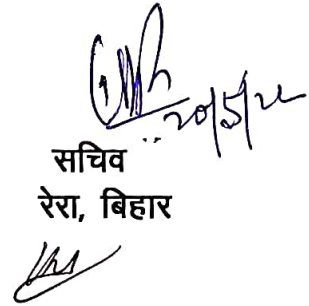 20/5/22
सचिव
रेरा, बिहार